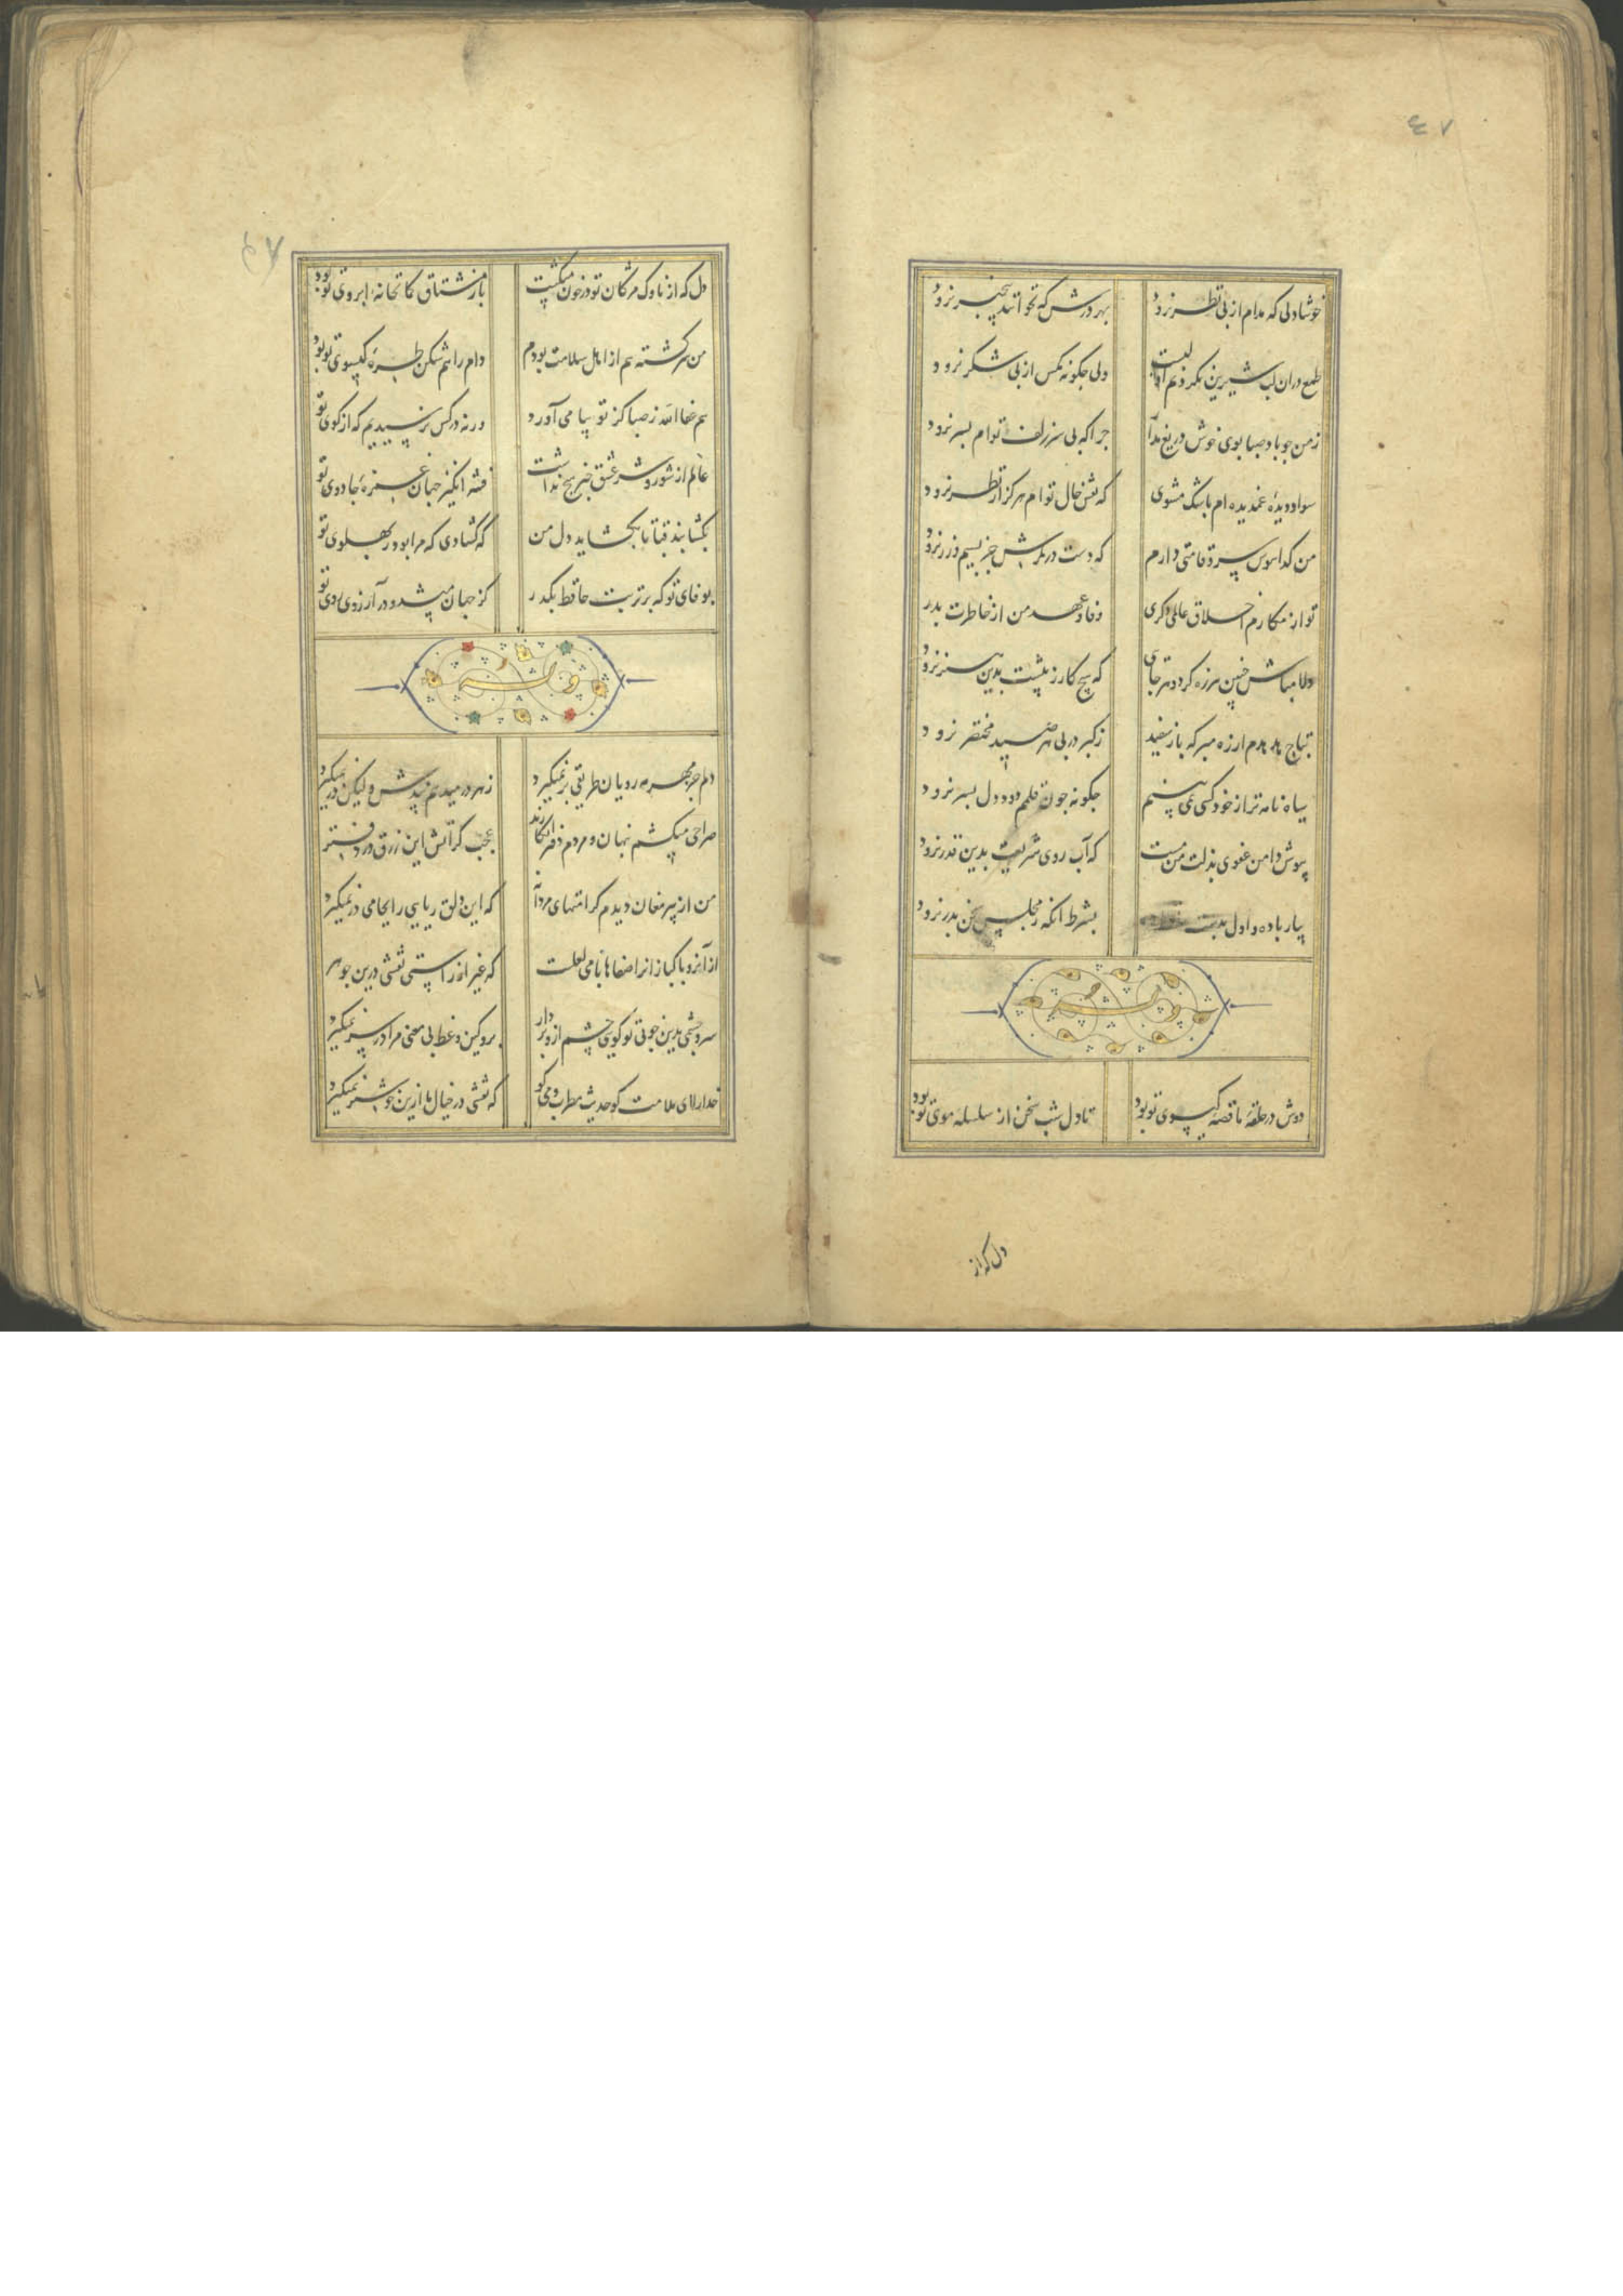 ٤٧
خوشا دلی که مدام از پی نظر نرود بهر درش که بخوانند بیخبر نرود
طمع دران لب شیرین نکردنم اولیست ولی چگونه مکس از پی شکر نرود
زمن چو باد صبا بوی خوش دریغ مدار چرا که بی سر زلف توام بسر نرود
سواد دیدهٔ غمدیده ام باشک مشوی که نقش خال توام هرکز از نظر نرود
من کدا هوس سروقامتی دارم که دست در کمرش جز بسیم و زر نرود
تو از مکارم اخلاق عالمی دکری وفا و عهد من از خاطرت بدر نرود
دلا مباش چنین هرزه کرد و هرجایی که هیچ کار ز پیشت بدین هنر نرود
بتاج هدهدم از ره مبر که باز سفید ز کبر در پی هر صید مختصر نرود
سیاه نامه تر از خود کسی نمی بینم چگونه چون قلمم دود دل بسر نرود
بپوش دامن عفوی بذلت من مست که آب روی شریعت بدین قدر نرود
بیار باده و اول بدست بشرط انکه ز مجلس سخن بدر نرود
وله
دوش در حلقهٔ ما قصهٔ کیسوی تو بود تا دل شب سخن از سلسله موی تو بود
دل که از
دل که از ناوک مژکان تو در خون میکشت باز مشتاق کمانخانه ابروی تو بود
من سرکشته هم از اهل سلامت بودم دام راهم شکن طرهٔ کیسوی تو بود
هم عفا الله ز صبا کز تو پیامی آورد ورنه در کس نرسیدیم که از کوی تو
عالم از شور و شر عشق خبر هیچ نداشت فتنه انکیز جهان غمزهٔ جادوی تو
بکشا بند قبا تا بکشاید دل من که کشادی که مرا بود ز پهلوی تو
بوفای تو که بر تربت حافظ بکذر کز جهان میشد و در آرزوی روی تو
وله
دلم جز مهر مه رویان طریقی بر نمیکیرد ز هر در میدهم پندش ولیکن در نمیکیرد
صراحی میکشم پنهان و مردم دفتر انکارند عجب کر آتش این زرق در دفتر
من از پیر مغان دیدم کرامتهای مردانه که این دلق ریایی را بجامی در نمیکیرد
از آنرو پاکبازانرا صفاها با می لعلست که غیر از راستی نقشی درین جوهر
سر و چشمی بدین خوبی تو کویی چشم ازو بردار برو کین وعظ بی معنی مرا در سر نمیکیرد
خدا را ای ملامت کو حدیث مطرب و می کو که نقشی در خیال ما ازین خوشتر نمیکیرد